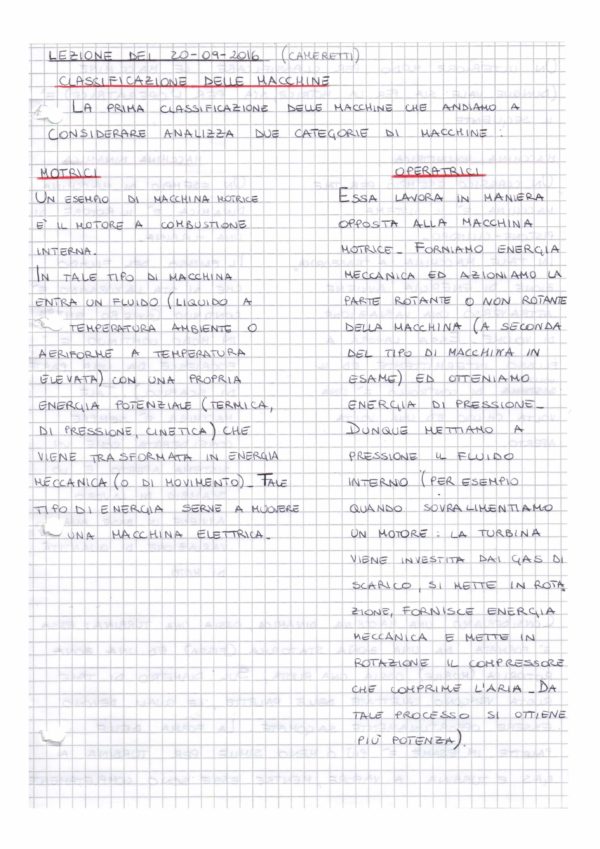 LEZIONE DEL 20-09-2016 (CAMERETTI)
CLASSIFICAZIONE DELLE MACCHINE
LA PRIMA CLASSIFICAZIONE DELLE MACCHINE CHE ANDIAMO A
CONSIDERARE ANALIZZA DUE CATEGORIE DI MACCHINE :
MOTRICI
UN ESEMPIO DI MACCHINA MOTRICE
E' IL MOTORE A COMBUSTIONE
INTERNA.
IN TALE TIPO DI MACCHINA
ENTRA UN FLUIDO (LIQUIDO A
TEMPERATURA AMBIENTE O
AERIFORME A TEMPERATURA
ELEVATA) CON UNA PROPRIA
ENERGIA POTENZIALE (TERMICA,
DI PRESSIONE, CINETICA) CHE
VIENE TRASFORMATA IN ENERGIA
MECCANICA (O DI MOVIMENTO)_ TALE
TIPO DI ENERGIA SERVE A MUOVERE
UNA MACCHINA ELETTRICA_
OPERATRICI
ESSA LAVORA IN MANIERA
OPPOSTA ALLA MACCHINA
MOTRICE_ FORNIAMO ENERGIA
MECCANICA ED AZIONIAMO LA
PARTE ROTANTE O NON ROTANTE
DELLA MACCHINA (A SECONDA
DEL TIPO DI MACCHINA IN
ESAME) ED OTTENIAMO
ENERGIA DI PRESSIONE_
DUNQUE METTIAMO A
PRESSIONE IL FLUIDO
INTERNO (PER ESEMPIO
QUANDO SOVRALIMENTIAMO
UN MOTORE : LA TURBINA
VIENE INVESTITA DAI GAS DI
SCARICO, SI METTE IN ROTA
ZIONE, FORNISCE ENERGIA
MECCANICA E METTE IN
ROTAZIONE IL COMPRESSORE
CHE COMPRIME L'ARIA_ DA
TALE PROCESSO SI OTTIENE
PIÙ POTENZA).